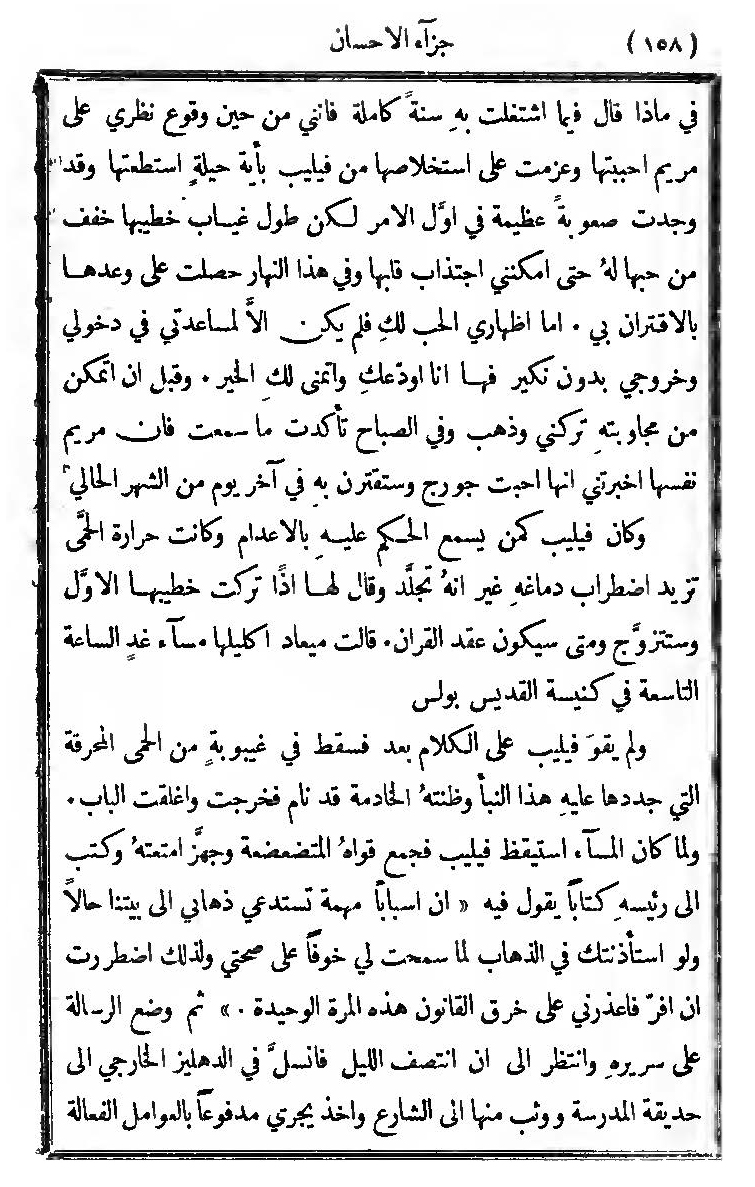 (١٥٨) جزآء الاحسان
في ماذا قال فيما اشتغلت بهِ سنةً كاملة فانني من حين وقوع نظري على
مريم احببتها وعزمت على استخلاصها من فيليب بأية حيلةٍ استطعتها وقد
وجدت صعوبةً عظيمة في اوَّل الامر لكن طول غياب خطيبها خفف
من حبها لهُ حتى امكنني اجتذاب قلبها وفي هذا النهار حصلت على وعدها
بالاقتران بي . اما اظهاري الحب لكِ فلم يكن الاَّ لمساعدتي في دخولي
وخروجي بدون نكير فها انا اودّعكِ واتمنى لكِ الخير . وقبل ان اتمكن
من مجاوبتهِ تركني وذهب وفي الصباح تأكدت ما سمعت فان مريم
نفسها اخبرتني انها احبت جورج وستقترن بهِ في آخر يوم من الشهر الحالي
وكان فيليب كمن يسمع الحكم عليهِ بالاعدام وكانت حرارة الحمَّى
تزيد اضطراب دماغهِ غير انهُ تجلَّد وقال لها اذًا تركت خطيبها الاوَّل
وستتزوَّج ومتى سيكون عقد القران . قالت ميعاد اكليلها مسآء غدٍ الساعة
التاسعة في كنيسة القديس بولس
ولم يقوَ فيليب على الكلام بعد فسقط في غيبوبةٍ من الحمى المحرقة
التي جددها عليهِ هذا النبأ وظنتهُ الخادمة قد نام فخرجت واغلقت الباب .
ولما كان المسآء استيقظ فيليب فجمع قواهُ المتضعضعة وجهَّز امتعتهُ وكتب
الى رئيسهِ كتابًا يقول فيه « ان اسبابًا مهمة تستدعي ذهابي الى بيتنا حالاً
ولو استأذنتك في الذهاب لما سمحت لي خوفًا على صحتي ولذلك اضطررت
ان افرّ فاعذرني على خرق القانون هذه المرة الوحيدة . » ثم وضع الرسالة
على سريرهِ وانتظر الى ان انتصف الليل فانسلَّ في الدهليز الخارجي الى
حديقة المدرسة ووثب منها الى الشارع واخذ يجري مدفوعًا بالعوامل الفعالة